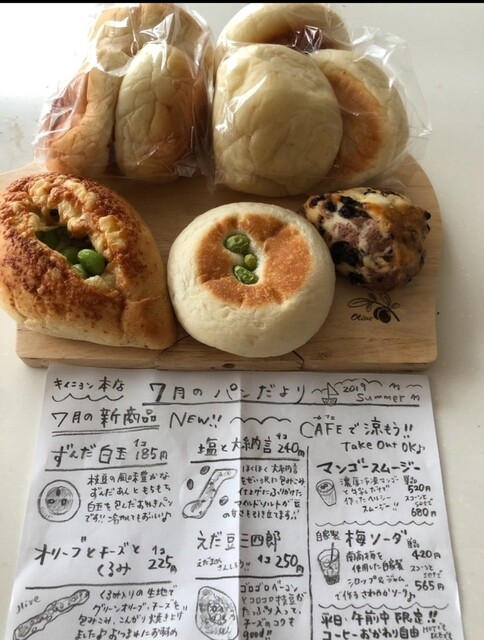 Olive
キイニョン本店
7月のパンだより
2019
Summer
7月の新商品 NEW!!
ずんだ白玉 1コ 185円
枝豆の風味豊かな
ずんだあんともちもち
白玉を包んだあげパン
です!!
オリーブとチーズと
くるみ 1コ 225円
Olive
くるみ入りの生地で
グリーンオリーブ・チーズを
包みこみ、こんがり焼き上げ
塩と大納言 1コ 240円
ほくほく大納言
をぜい沢に包みこみ
マイルドソルトが豆
えだ豆三四郎
1コ 250円
ゴロゴロベーコン
チーズのコク
good!!
CAFEで涼もう!!
Take Out OK♪
マンゴースムージー
単品 520円
スコーンと
セットで
880円
自家製 梅ソーダ
単品 420円
南高梅を
使用した自家製
シロップ
で作るさわやかソーダ♪
スコーンと
セットで
565円
平日・午前中限定!!
コーヒーおかわり自由